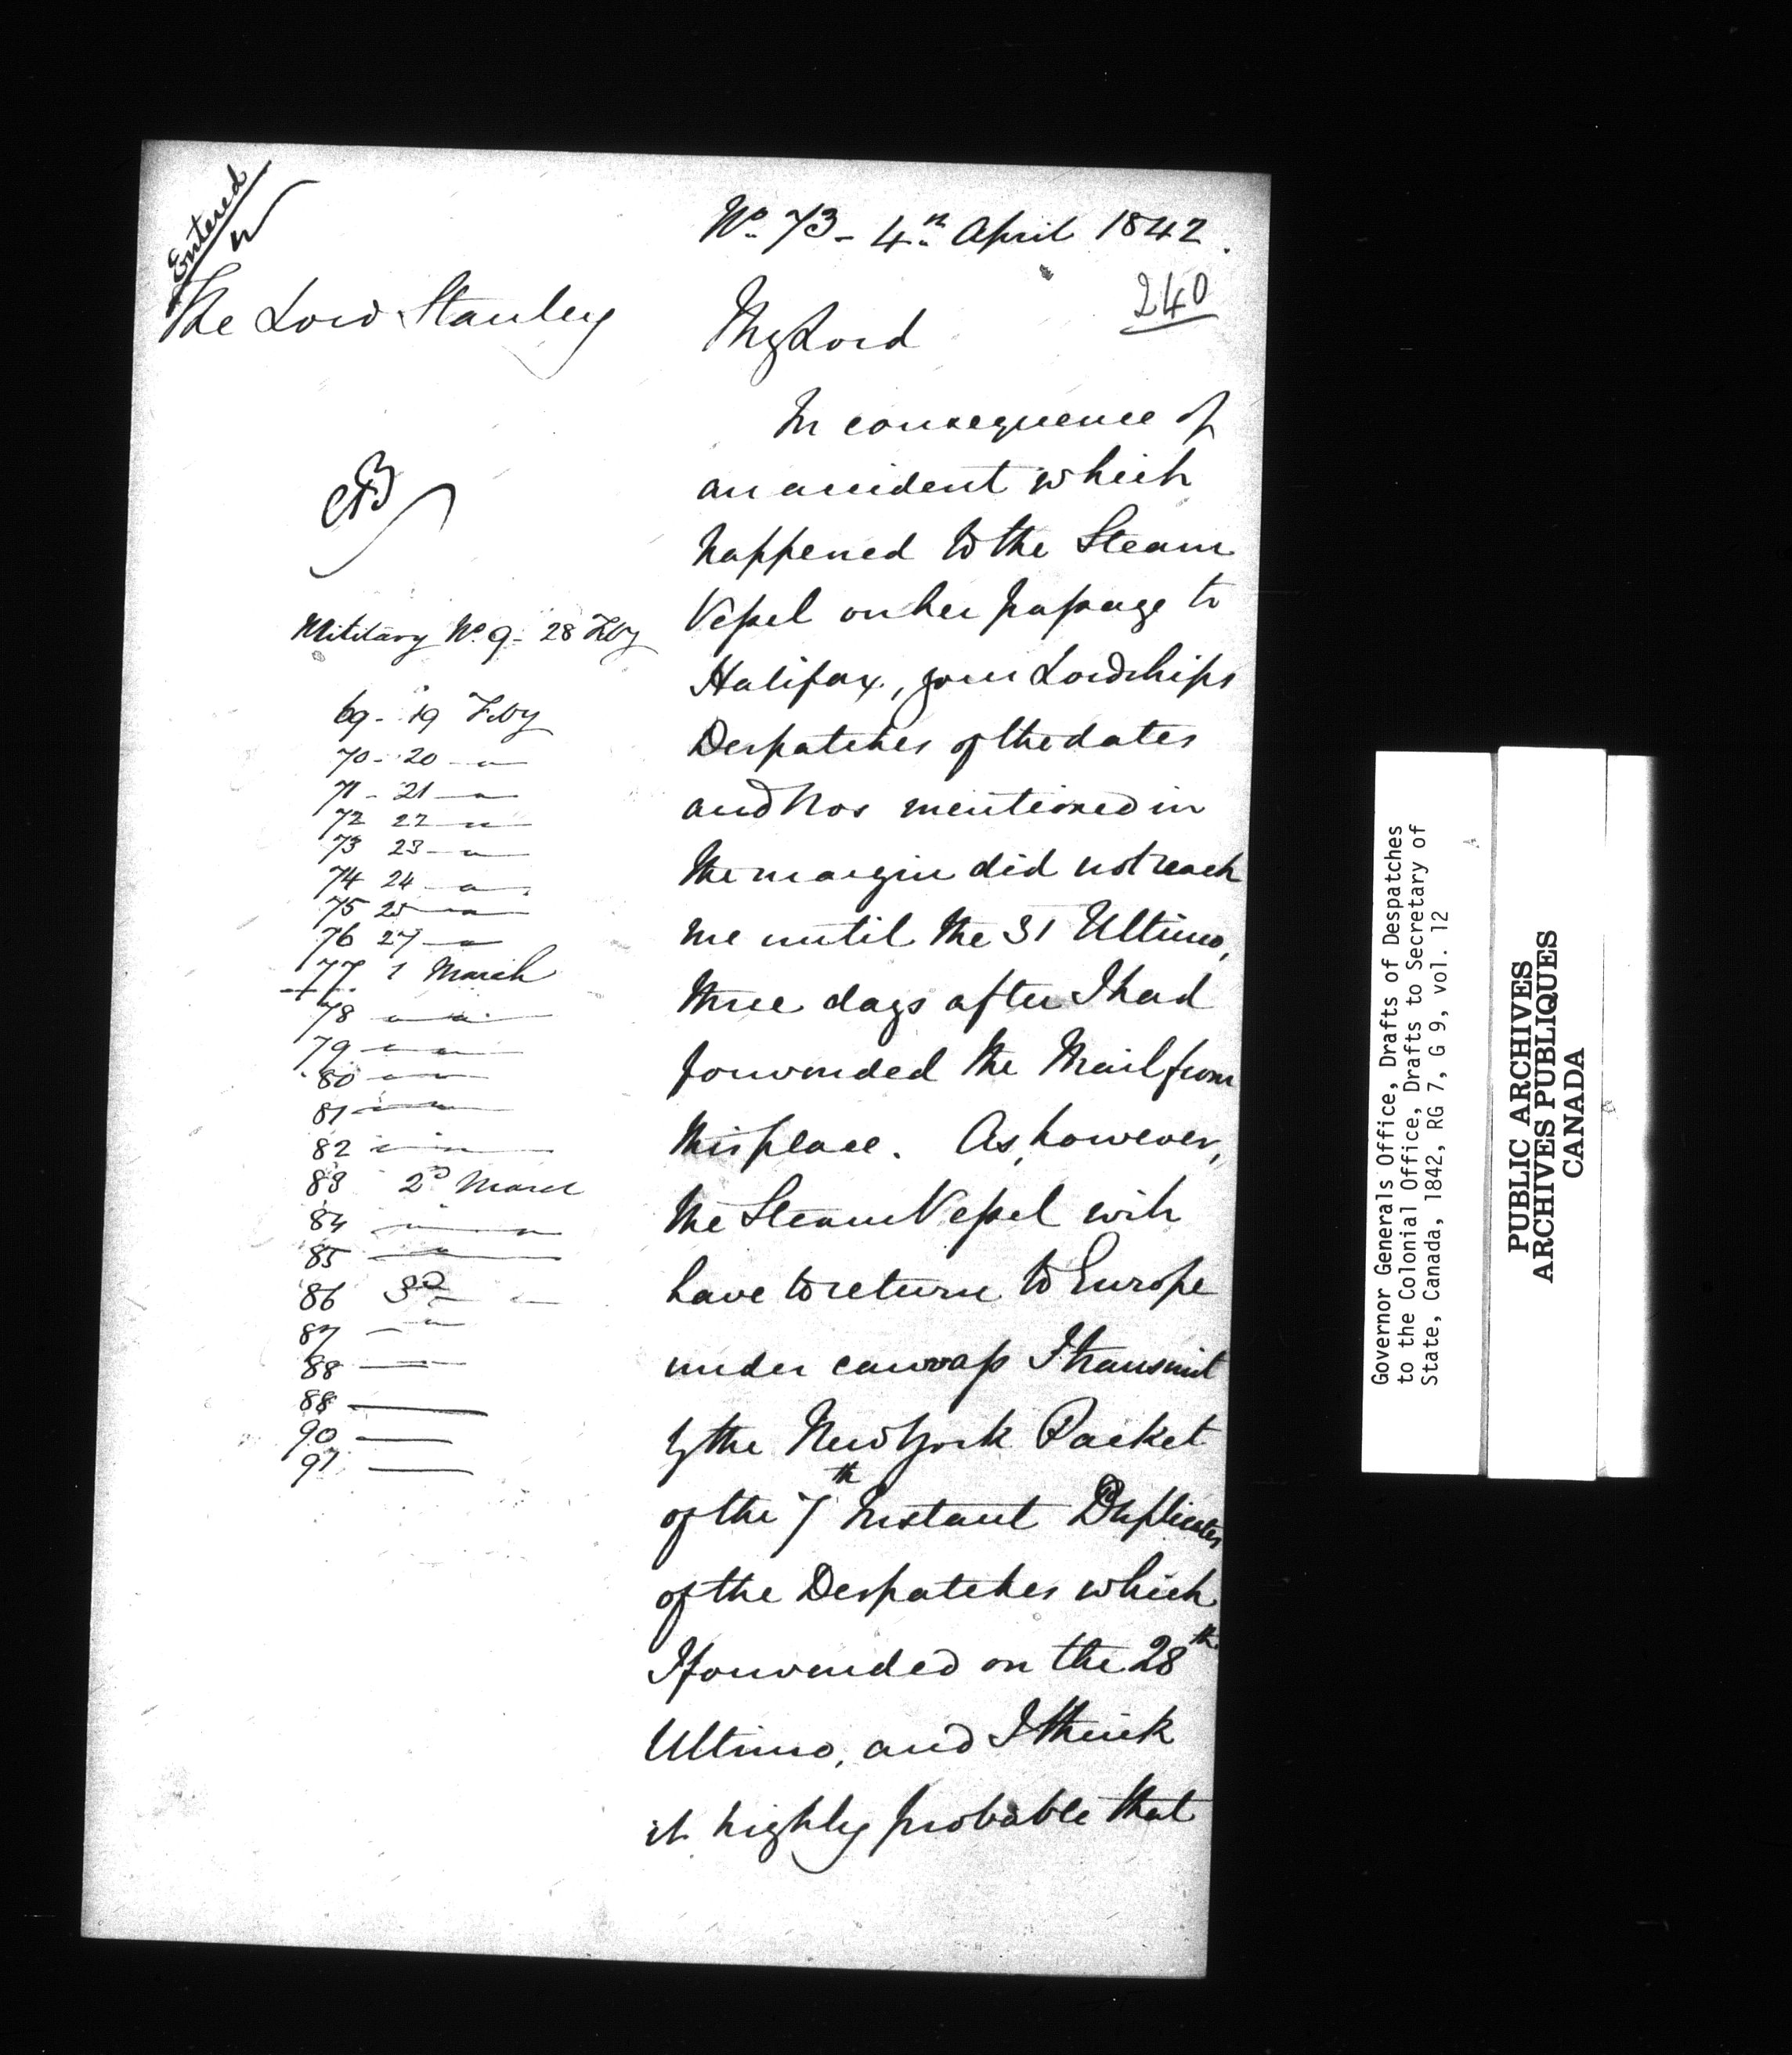 Entered
No. 73 - 4th April 1842.
240
The Lord Stanley
My Lord
In consequence of
an accident which
happened to the Steam
Vessel on her passage to
Halifax, your Lordships
Despatches of the dates
and Nos mentioned in
the margin did not reach
me until the 31 Ultimo,
three days after I had
forwarded the Mail from
this place. As, however,
the Steam Vessel will
have to return to Europe
under canvass I transmit
by the New York Packet
of the 7th Instant Duplicates
of the Despatches which
I forwarded on the 28th
Ultimo, and I think
it highly probable that
Military No. 9 - 28 Feby
69 - 19 Feby
70 - 20 — " —
71 - 21 — " —
72 22 — " —
73 23 — " —
74 24 — " —
75 25 — " —
76 27 — " —
77. 1 March
78 — " — " —
79 — " — " —
80 — " — " —
81 — " — " —
82 — " — " —
83 2d March
84 — " — " —
85 — " —
86 3d — " —
87 — " —
88 —
88 —
90 —
91 —
Governor Generals Office, Drafts of Despatches
to the Colonial Office, Drafts to Secretary of
State, Canada, 1842, RG 7, G 9, vol. 12
PUBLIC ARCHIVES
ARCHIVES PUBLIQUES
CANADA